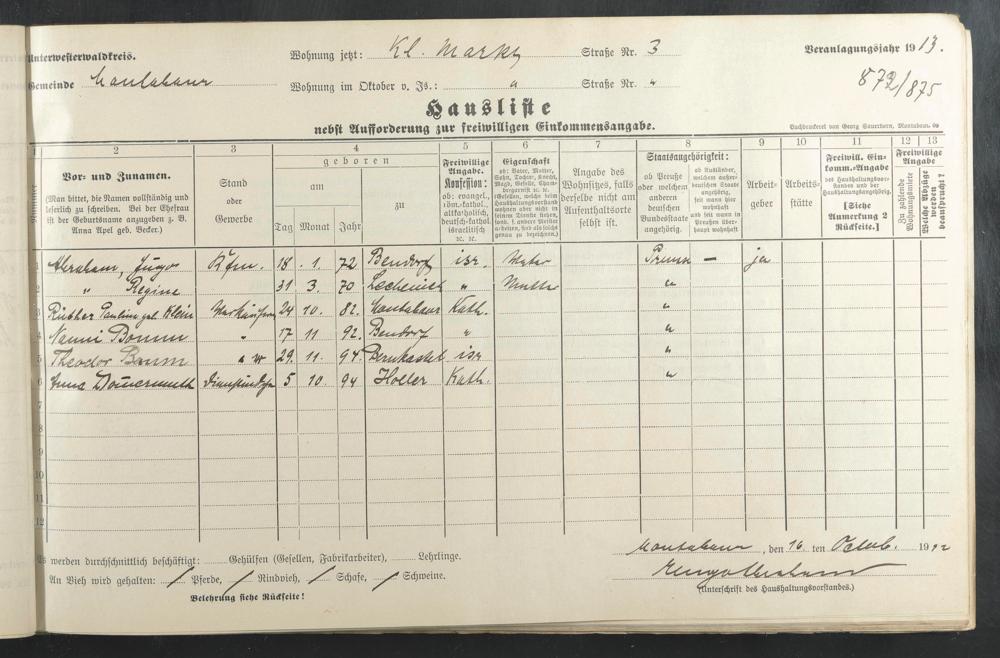 Unterwesterwaldkreis. Wohnung jetzt: Kl. Markt Straße Nr. 3 Veranlagungsjahr 1913.
Gemeinde Montabaur Wohnung im Oktober v. Js.: " Straße Nr. " 872/875
Hausliste
nebst Aufforderung zur freiwilligen Einkommensangabe.
Buchdruckerei von Georg Sauerborn, Montabaur.
1 2 3 4 5 6 7 8 9 10 11 12 13
Vor- und Zunamen.
(Man bittet, die Namen vollständig und
leserlich zu schreiben. Bei der Ehefrau
ist der Geburtsname anzugeben z. B.
Anna Apel geb. Becker.)
Stand
oder
Gewerbe
geboren
am zu
Tag Monat Jahr
Freiwillige
Angabe.
Konfession:
ob: evangel.,
röm.-kathol.,
altkatholisch,
deutsch-kathol.
israelitisch
ꝛc. ꝛc.
Eigenschaft
ob: Vater, Mutter,
Sohn, Tochter, Knecht,
Magd, Geselle, Cham-
bregarnist ꝛc. ꝛc.
(Gesellen, welche beim
Haushaltungsvorstand
wohnen aber nicht in
seinem Dienste stehen,
sond. f. andere Meister
arbeiten, sind als solche
genau zu bezeichnen.)
Angabe des
Wohnsitzes, falls
derselbe nicht am
Aufenthaltsorte
selbst ist.
Staatsangehörigkeit:
ob Preuße
oder welchem
anderen
deutschen
Bundesstaate
angehörig.
ob Ausländer,
welchem außer-
deutschen Staate
angehörig.
seit wann hier
wohnhaft
und seit wann in
Preußen über-
haupt wohnhaft
Arbeit-
geber
Arbeits-
stätte
Freiwill. Ein-
komm.-Angabe
des Haushaltungsvor-
standes und der
Haushaltungsangehörig.
[Siehe
Anmerkung 2
Rückseite.]
Freiwillige
Angabe
Zu zahlende
Wohnungsmiete
Welche Abzüge
werden
beansprucht?
1 Abraham, Hugo Kfm. 18. 1. 72 Bendorf isr. Vater Preuße — ja
2 " Regine 31 3. 70 Lechenich " Mutter "
3 Pauline geb. Klein Verkäuferin 24 10. 82. Montabaur Kath. "
4 Nanni " 17 11 92. Bendorf " "
5 Theodor Baum " 29. 11. 94. Bernkastel isr "
6 Anna 5 10. 94 Holler Kath. "
7
8
9
10
11
12
Es werden durchschnittlich beschäftigt: Gehülfen (Gesellen, Fabrikarbeiter), Lehrlinge.
An Vieh wird gehalten: / Pferde, / Rindvieh, / Schafe, / Schweine.
Belehrung siehe Rückseite!
Montabaur, den 16. ten Octob. 1912
Hugo Abraham
(Unterschrift des Haushaltungsvorstandes.)